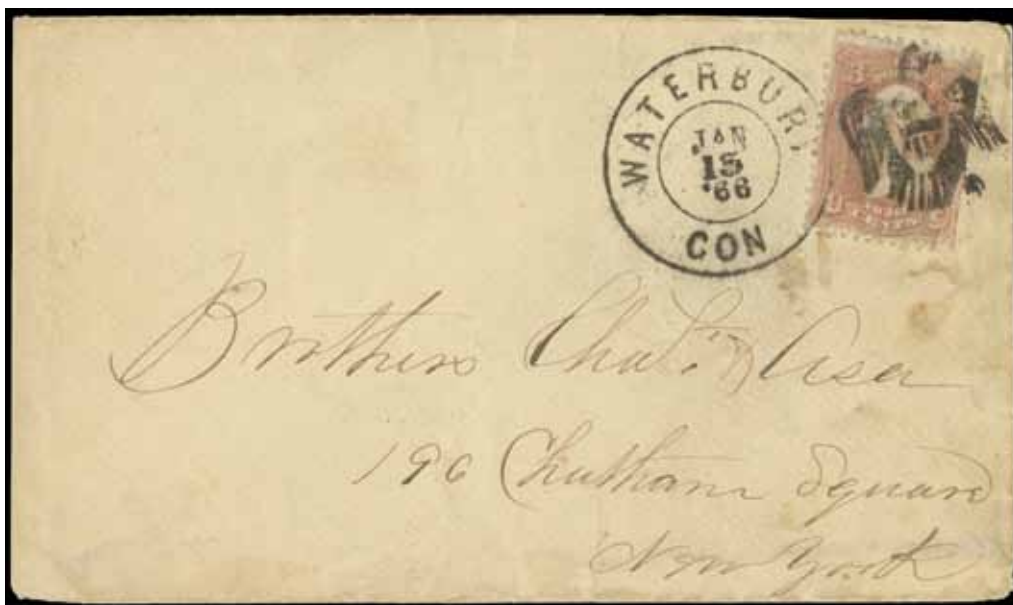 WATERBURY
JAN
15
'66
CON
Brothers Chat. & Asa
196 Chatham Square
New York